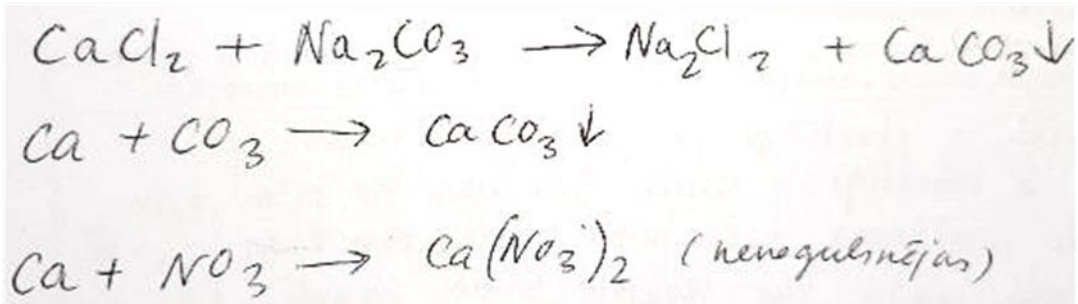 CaCl₂ + Na₂CO₃ → Na₂Cl₂ + CaCO₃↓
Ca + CO₃ → CaCO₃↓
Ca + NO₃ → Ca(NO₃)₂ (nenogulsnējas)